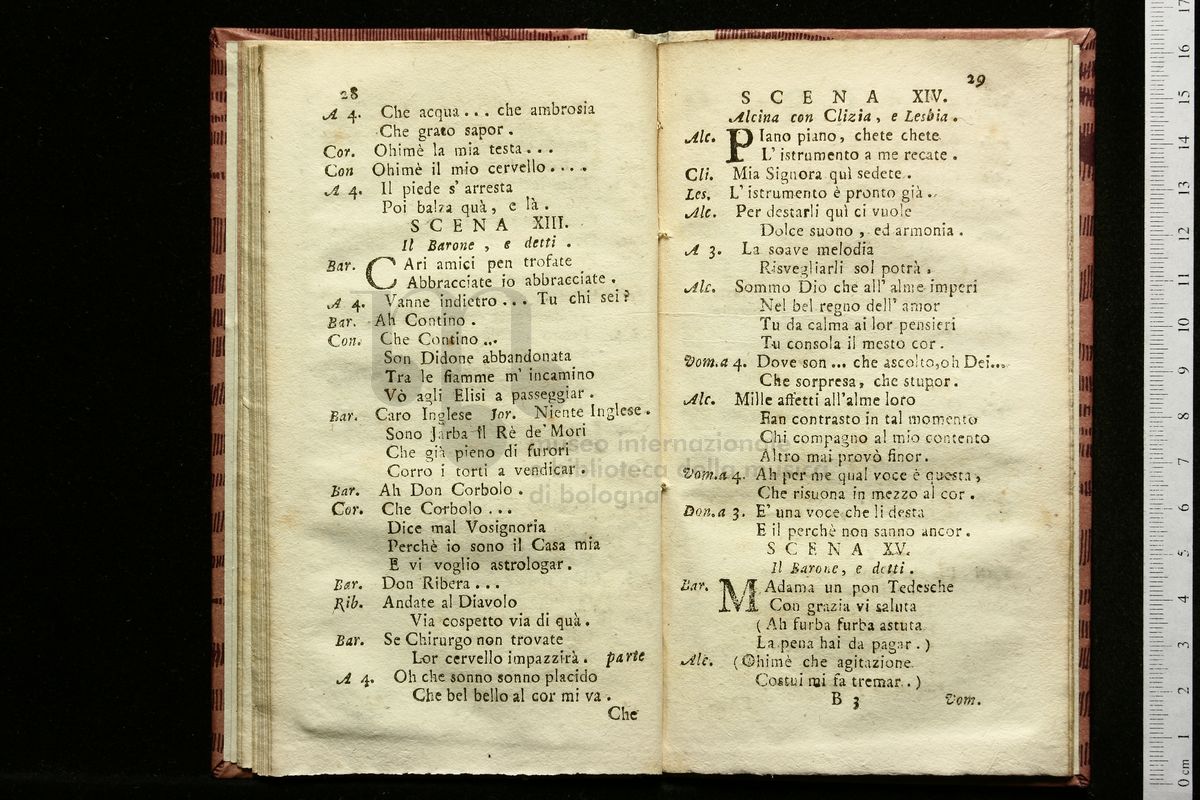 28
A 4. Che acqua... che ambrosia
Che grato sapor.
Cor. Ohimè la mia testa...
Con Ohimè il mio cervello....
A 4. Il piede s' arresta
Poi balza quà, e là.
SCENA XIII.
Il Barone, e detti.
Bar. CAri amici pen trofate
Abbracciate io abbracciate.
A 4. Vanne indietro... Tu chi sei?
Bar. Ah Contino.
Con. Che Contino...
Son Didone abbandonata
Tra le fiamme m' incamino
Vò agli Elisi a passeggiar.
Bar. Caro Inglese Jor. Niente Inglese.
Sono Jarba il Rè de' Mori
Che già pieno di furori
Corro i torti a vendicar.
Bar. Ah Don Corbolo.
Cor. Che Corbolo...
Dice mal Vosignoria
Perchè io sono il Casa mia
E vi voglio astrologar.
Bar. Don Ribera...
Rib. Andate al Diavolo
Via cospetto via di quà.
Bar. Se Chirurgo non trovate
Lor cervello impazzirà. parte
A 4. Oh che sonno sonno placido
Che bel bello al cor mi va.
Che
29
SCENA XIV.
Alcina con Clizia, e Lesbia.
Alc. PIano piano, chete chete
L' istrumento a me recate.
Cli. Mia Signora quì sedete.
Les. L' istrumento è pronto già.
Alc. Per destarli quì ci vuole
Dolce suono, ed armonia.
A 3. La soave melodia
Risvegliarli sol potrà,
Alc. Sommo Dio che all' alme imperi
Nel bel regno dell' amor
Tu da calma ai lor pensieri
Tu consola il mesto cor.
Vom.a 4. Dove son... che ascolto, oh Dei...
Che sorpresa, che stupor.
Alc. Mille affetti all'alme loro
Fan contrasto in tal momento
Chi compagno al mio contento
Altro mai provò finor.
Vom.a 4. Ah per me qual voce è questa,
Che risuona in mezzo al cor.
Don.a 3. E' una voce che li desta
E il perchè non sanno ancor.
SCENA XV.
Il Barone, e detti.
Bar. MAdama un pon Tedesche
Con grazia vi saluta
(Ah furba furba astuta
La pena hai da pagar.)
Alc. (Ohimè che agitazione
Costui mi fa tremar.)
B 3 Vom.
museo internazionale
biblioteca della musica
di bologna
0 cm 1 2 3 4 5 6 7 8 9 10 11 12 13 14 15 16 17